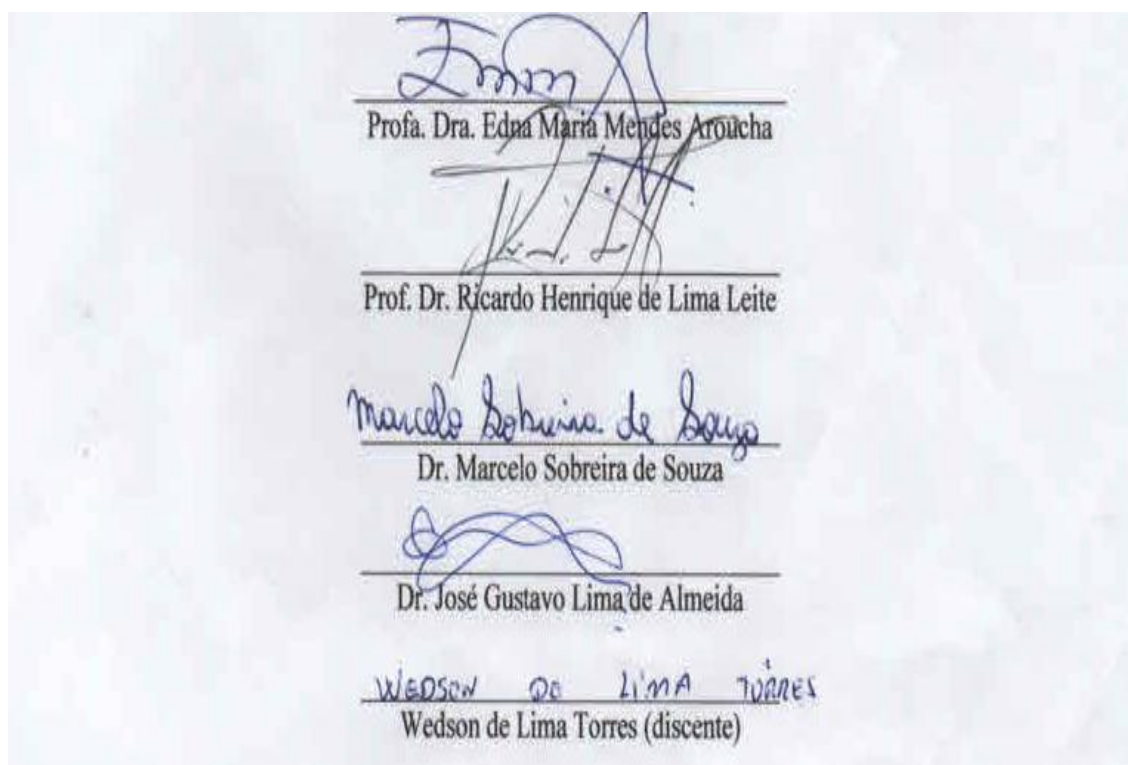 Profa. Dra. Edna Maria Mendes Aroucha
Prof. Dr. Ricardo Henrique de Lima Leite
Marcelo Sobreira de Souza
Dr. Marcelo Sobreira de Souza
Dr. José Gustavo Lima de Almeida
WEDSON DE LIMA TORRES
Wedson de Lima Torres (discente)